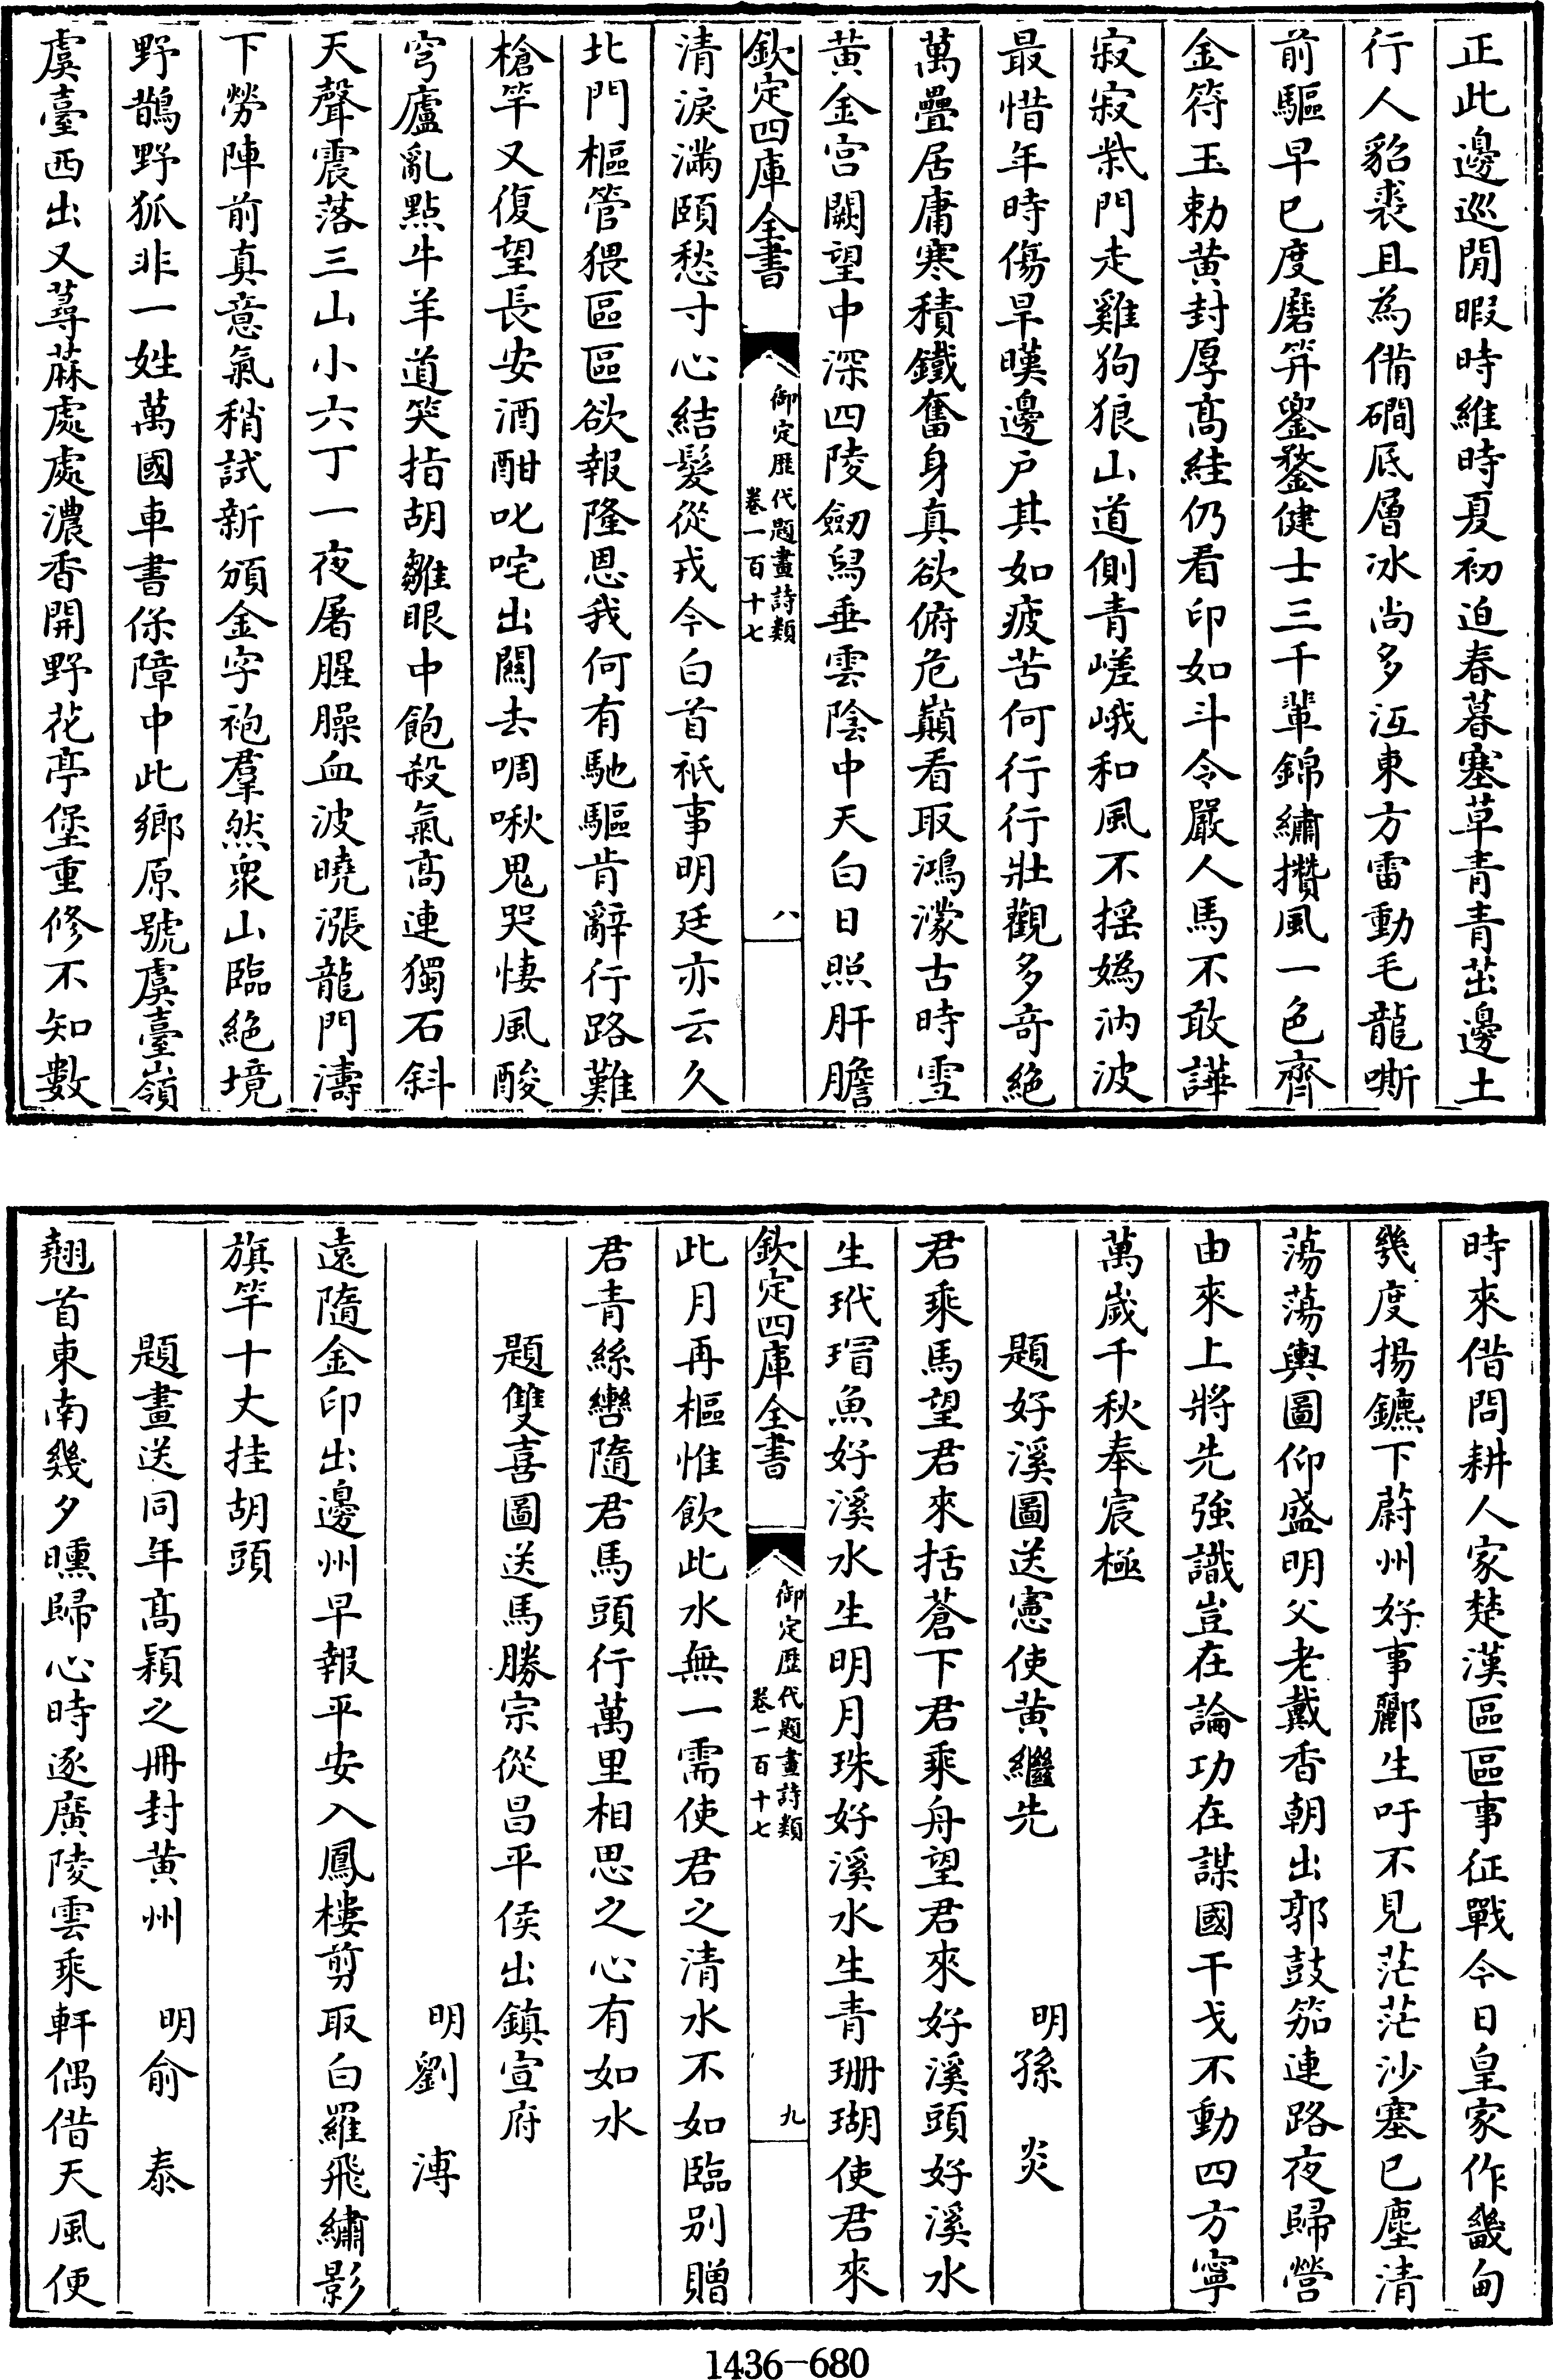 正此邊巡閒暇時維時夏初迫春暮塞草青青茁邊土
行人貂裘且為備磵底層冰尚多沍東方雷動毛龍嘶
前驅早已度磨笄鍪健士三千輩錦繡攢風一色齊
金符玉勅黄封厚高絓仍看印如斗令嚴人馬不敢譁
寂寂柴門走雞狗狼山道側青嵯峨和風不揺媯汭波
最惜年時傷旱暵邊戶其如疲苦何行行壯觀多奇絶
萬疊居庸寒積鐵奮身真欲俯危巔看取鴻濛古時雪
黄金宫闕望中深四陵劒舄垂雲陰中天白日照肝膽
欽定四庫全書
御定歴代題畫詩類
卷一百十七
八
清淚滿頤愁寸心結髮從戎今白首祇事明廷亦云久
北門樞管猥區區欲報隆恩我何有馳驅肯辭行路難
槍竿又復望長安酒酣叱咤出關去啁啾鬼哭悽風酸
穹廬亂點牛羊道笑指胡雛眼中飽殺氣高連獨石斜
天聲震落三山小六丁一夜屠腥臊血波曉漲龍門濤
下勞陣前真意氣稍試新頒金字袍羣然衆山臨絶境
野鵲野狐非一姓萬國車書保障中此鄉原號虞臺嶺
虞臺西出又蕁蔴處處濃香開野花亭堡重修不知數
時來借問耕人家楚漢區區事征戰今日皇家作畿甸
幾度揚鑣下蔚州好事酈生吁不見茫茫沙塞已塵清
蕩蕩輿圖仰盛明父老戴香朝出郭鼓笳連路夜歸營
由來上將先強識豈在論功在謀國干戈不動四方寧
萬歲千秋奉宸極
題好溪圖送憲使黄繼先　明孫炎
君乘馬望君來括蒼下君乘舟望君來好溪頭好溪水
生玳瑁魚好溪水生明月珠好溪水生青珊瑚使君來
欽定四庫全書
御定歴代題畫詩類
卷一百十七
九
此月再樞惟飲此水無一需使君之清水不如臨别贈
君青絲轡隨君馬頭行萬里相思之心有如水
題雙喜圖送馬勝宗從昌平侯出鎮宣府
明劉溥
遠隨金印出邊州早報平安入鳳樓剪取白羅飛繡影
旗竿十丈挂胡頭
題畫送同年高穎之冊封黄州　明俞泰
翹首東南幾夕曛歸心時逐廣陵雲乘軒偶借天風便
1436-680